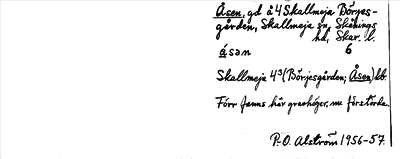 Åsen, gd å 4 Skallmeja Börjes-
gården, Skallmeja sn, Skånings
hd, Skar. l.
åsən 6
Skallmeja 4³ (Börjesgården; Åsen) kb.
Förr fanns här gravhögar, nu förstörda.
P.-O. Alström 1956-57.